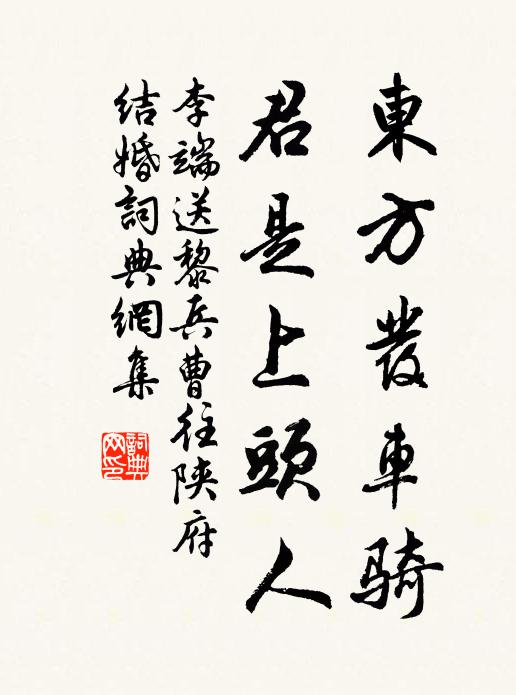 東方發車騎
君是上頭人
李端送黎兵曹往陝府
結婚詞典網集
詞典
网印